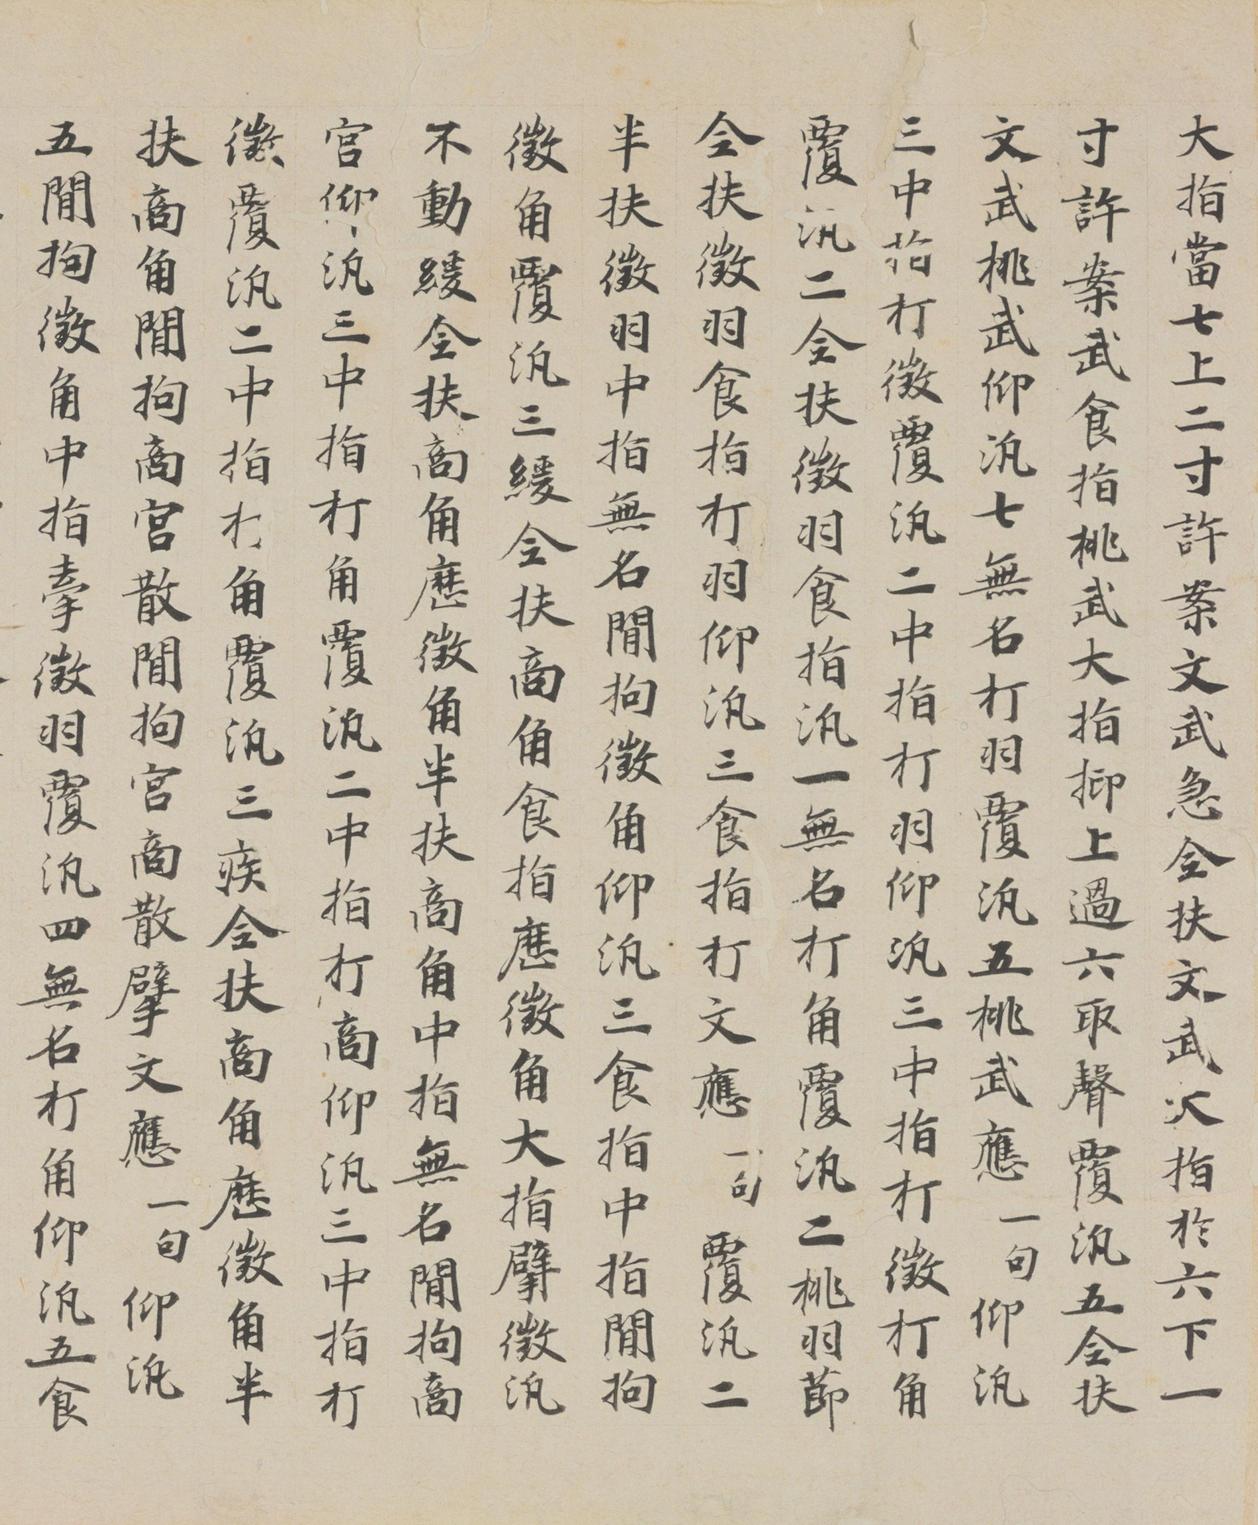 大指當七上二寸許案文武急全扶文武大指於六下一
寸許案武食指桃武大指抑上過六取聲覆汎五全扶
文武桃武仰汎七無名打羽覆汎五桃武應一句仰汎
三中指打徵覆汎二中指打羽仰汎三中指打徵打角
覆汎二全扶徵羽食指汎一無名打角覆汎二桃羽節
全扶徵羽食指打羽仰汎三食指打文應一句覆汎二
半扶徵羽中指無名閒拘徵角仰汎三食指中指閒拘
徵角覆汎三緩全扶商角食指歷徵角大指擘徵汎
不動緩全扶商角歷徵角半扶商角中指無名閒拘商
宮仰汎三中指打角覆汎二中指打商仰汎三中指打
徵覆汎二中指打角覆汎三疾全扶商角歷徵角半
扶商角閒拘商宮散閒拘宮商散擘文應一句仰汎
五閒拘徵角中指牽徵羽覆汎四無名打角仰汎五食